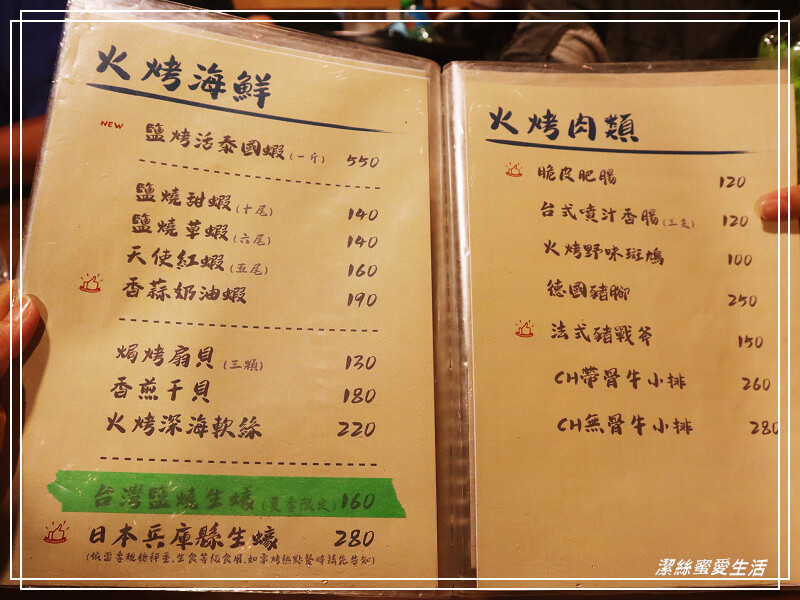 火烤海鮮
NEW 鹽烤活泰國蝦(一斤) 550
鹽燒甜蝦(十尾) 140
鹽燒草蝦(六尾) 140
天使紅蝦(五尾) 160
香蒜奶油蝦 190
焗烤扇貝(三顆) 130
香煎干貝 180
火烤深海軟絲 220
台灣鹽燒生蠔(夏季限定) 160
日本兵庫縣生蠔 280
(依當季規格秤重,生食等級食用,如需烤熟點餐時請先告知)
火烤肉類
脆皮肥腸 120
台式噴汁香腸(三支) 120
火烤野味斑鳩 100
德國豬腳 250
法式豬戰斧 150
CH帶骨牛小排 260
CH無骨牛小排 280
潔絲蜜愛生活